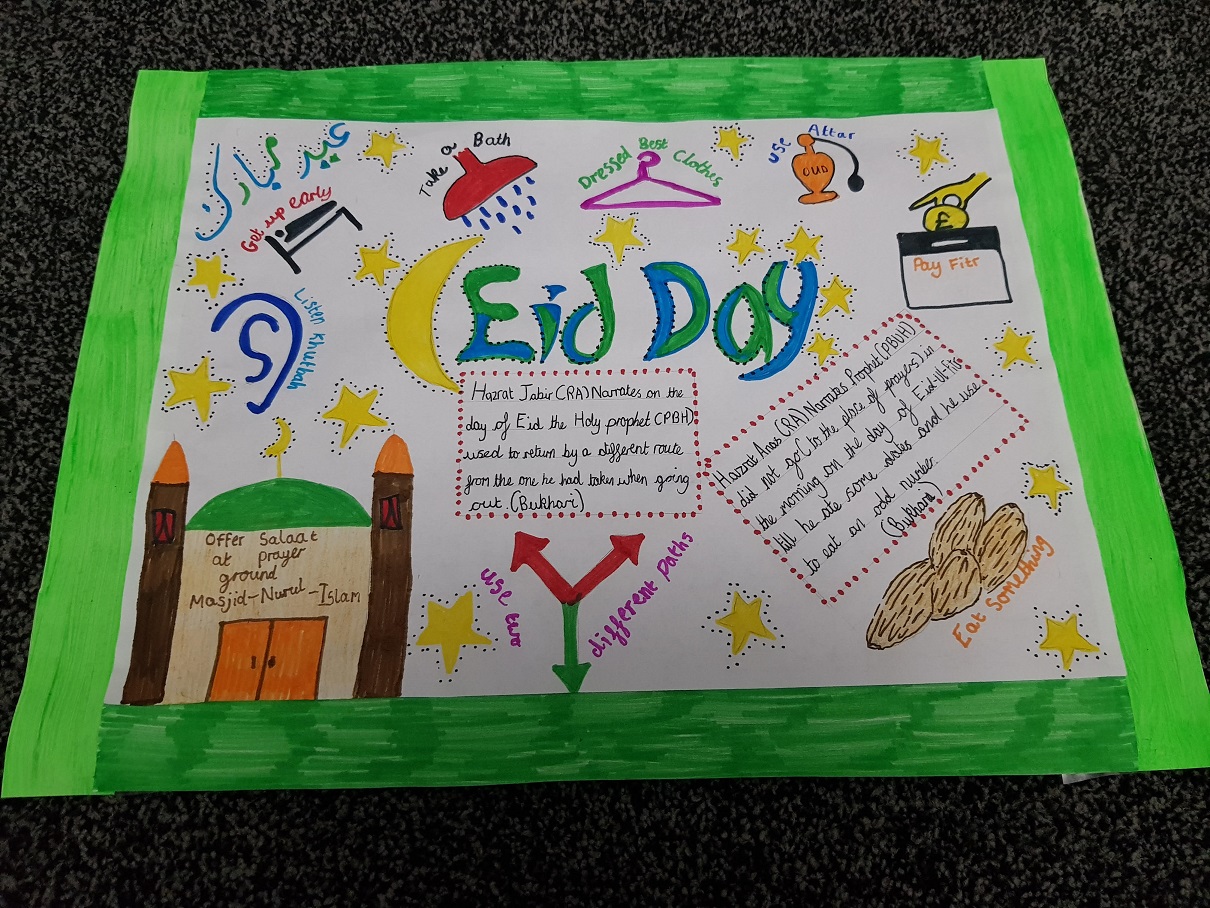 عيد مبارك
Get up early
Take a Bath
Dressed Best Clothes
Use Attar
OUD
£
Pay Fitr
Listen Khutbah
Eid Day
Hazrat Jabir (RA) Narrates on the
day of Eid the Holy prophet (PBH)
used to return by a different route
from the one he had taken when going
out. (Bukhari)
Hazrat Anas (RA) Narrates Prophet (PBUH)
did not go( to the place of prayes) in
the morning on the day of Eid-Ul-Fitr
till he ate some dates and he use
to eat an odd number.
(Bukhari)
Offer Salaat
at prayer
ground
Masjid-Nurul-Islam
use two
different paths
Eat Something